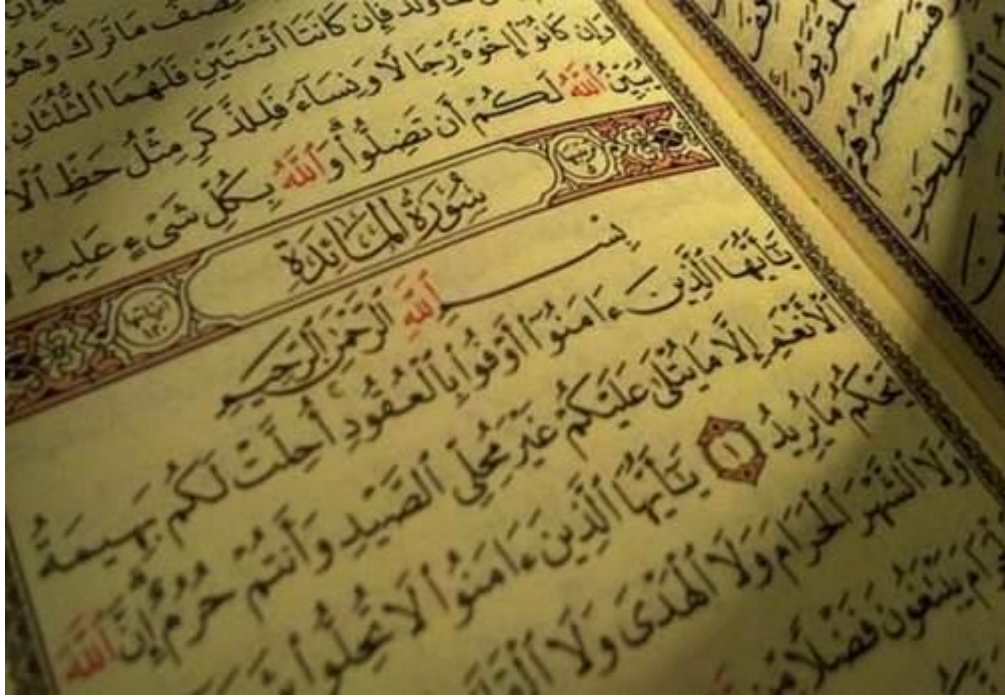 يُصْفُ مَا تَرَكَ وَهُوَ
فَإِن كَانَتَا ٱثْنَتَيْنِ فَلَهُمَا ٱلثُّلُثَانِ
وَإِن كَانُوٓا۟ إِخْوَةً رِّجَالًا وَنِسَآءً فَلِلذَّكَرِ مِثْلُ حَظِّ
يُبَيِّنُ ٱللَّهُ لَكُمْ أَن تَضِلُّوا۟ وَٱللَّهُ بِكُلِّ شَىْءٍ عَلِيمٌۢ
سُورَةُ المَائِدَةِ
بِسْمِ ٱللَّهِ ٱلرَّحْمَٰنِ ٱلرَّحِيمِ
يَٰٓأَيُّهَا ٱلَّذِينَ ءَامَنُوٓا۟ أَوْفُوا۟ بِٱلْعُقُودِ أُحِلَّتْ لَكُم بَهِيمَةُ
ٱلْأَنْعَٰمِ إِلَّا مَا يُتْلَىٰ عَلَيْكُمْ غَيْرَ مُحِلِّى ٱلصَّيْدِ وَأَنتُمْ حُرُمٌ إِنَّ ٱللَّهَ
يَحْكُمُ مَا يُرِيدُ ١ يَٰٓأَيُّهَا ٱلَّذِينَ ءَامَنُوا۟ لَا تُحِلُّوا۟
وَلَا ٱلشَّهْرَ ٱلْحَرَامَ وَلَا ٱلْهَدْىَ وَلَا
يَبْتَغُونَ فَضْلًا مِّن
ٱلْمُقَرَّبُونَ
فَسَيَحْشُرُهُمْ
ٱلصَّٰلِحَٰتِ